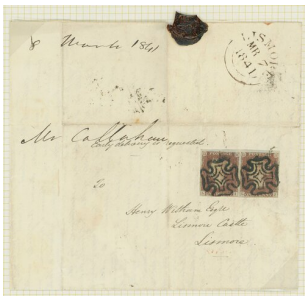 8 March 1841
LISMORE
MR 7
1841
Mr Callaghan
Early delivery is requested.
To
Henry Witham Esqre
Lismore Castle
Lismore